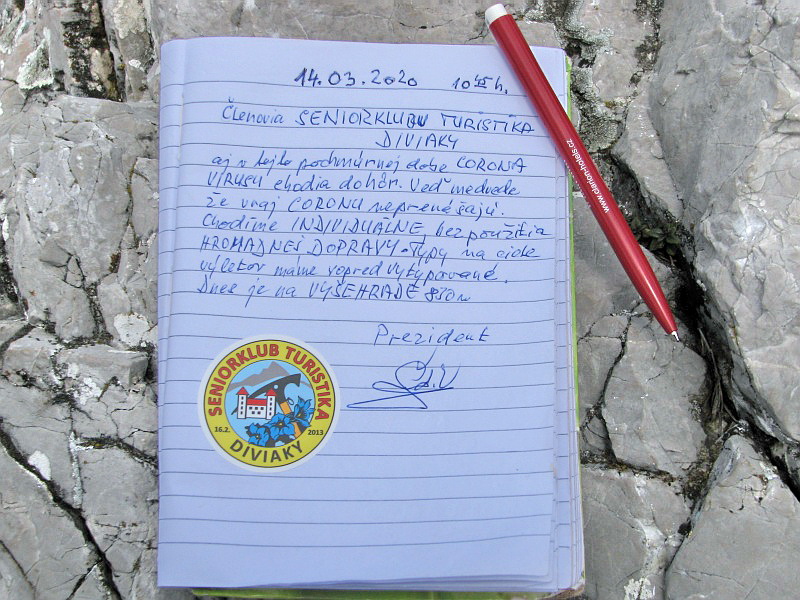 14.03.2020 10 45 h.
Členovia SENIORKLUBU TURISTIKA
DIVIAKY
aj v tejto pochmúrnej dobe CORONA
VÍRUSU chodia do hôr. Veď medvede
že vraj CORONU neprenášajú.
Chodíme INDIVIDUÁLNE, bez použitia
HROMADNEJ DOPRAVY. Typy na ciele
výletov máme vopred vytypované.
Dnes je na VYŠEHRADE 830m
Prezident
SENIORKLUB TURISTIKA
16.2. 2013
DIVIAKY
www.clarion-hotels.cz